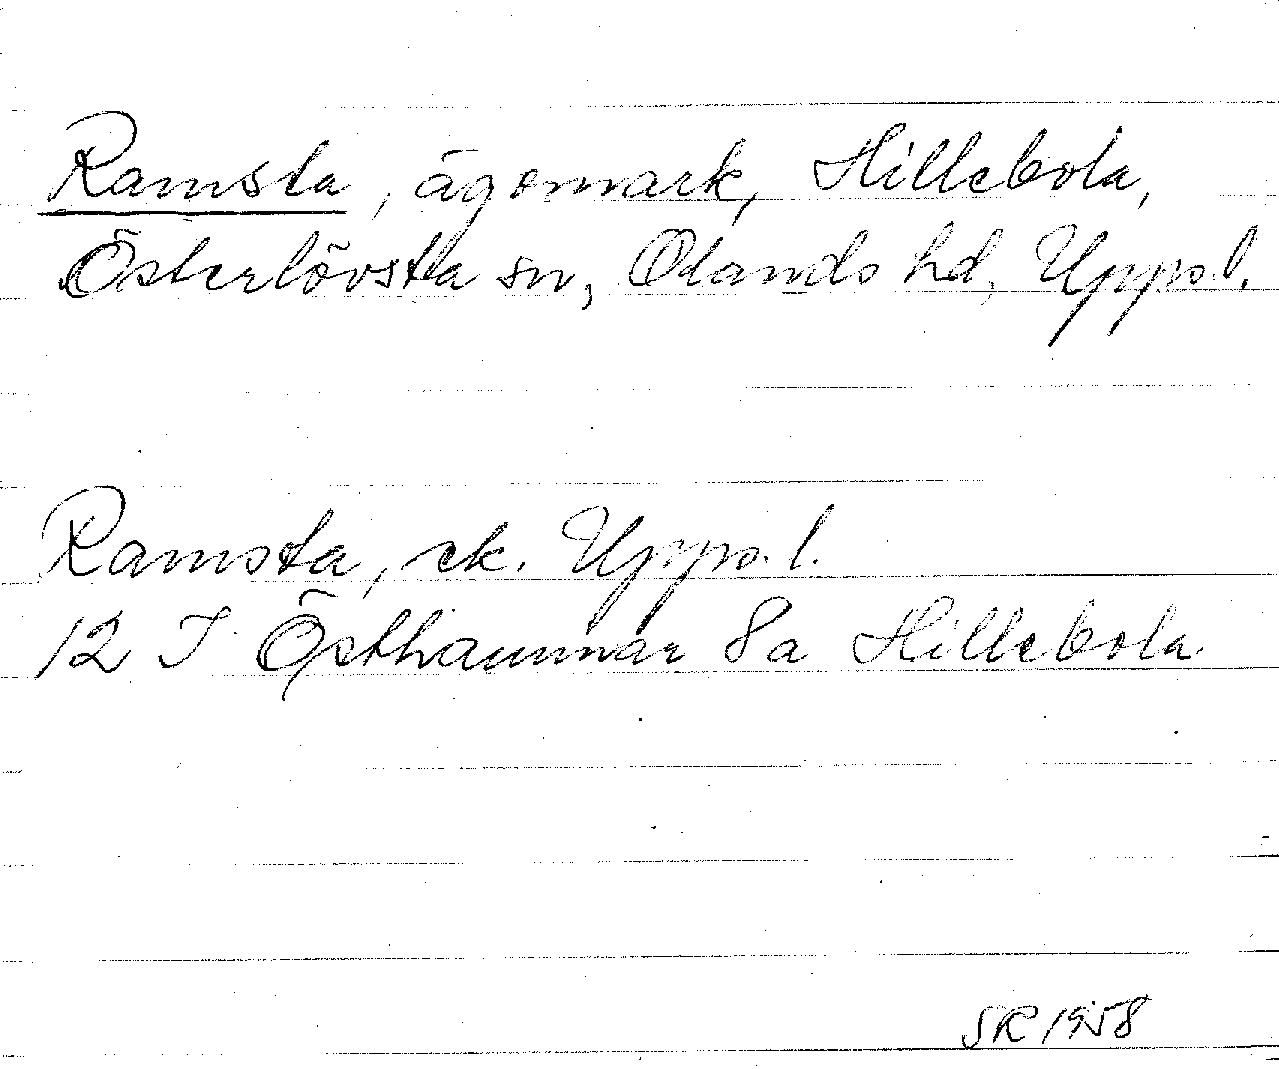 Ramsta, ägomark, Hillebola,
Österlövsta sn, Olands hd, Upps.l.
Ramsta, ek. Upps.l.
12 I Östhammar 8a Hillebola
SR 1958